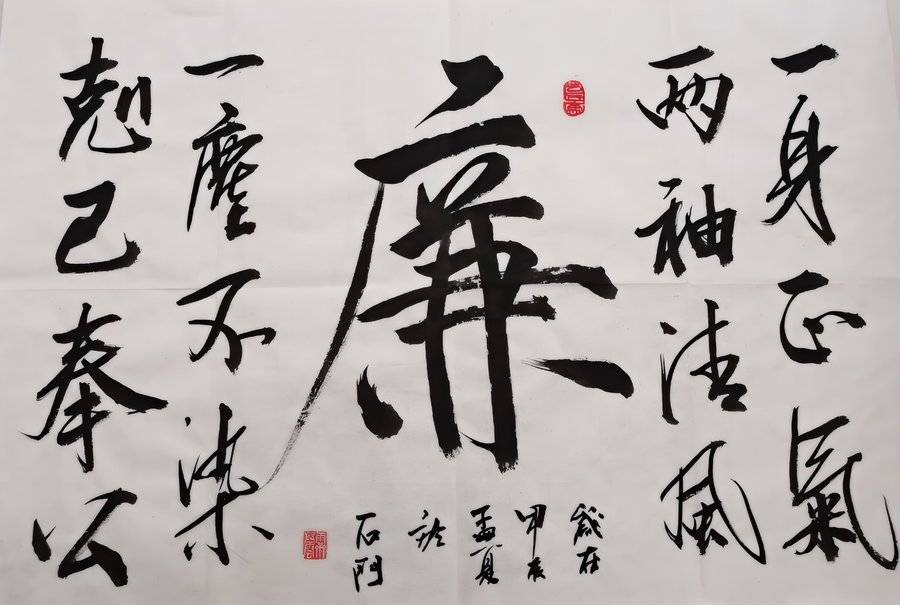 一身正氣
兩袖清風
廉
歲在
甲辰
孟夏
於
石門
一塵不染
剋己奉公